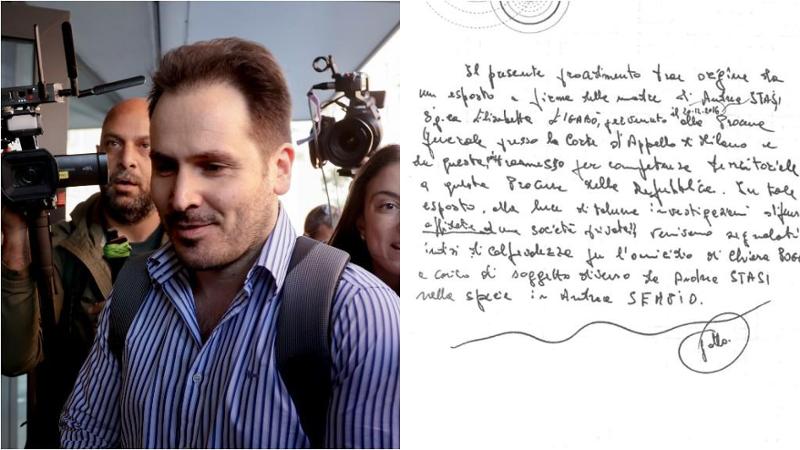 Il presente procedimento trae origine da
un esposto a firma della madre di Andrea STASI
Sig.ra Elisabetta LIGABO, pervenuto il 20.12.2016 alla Procura
Generale presso la Corte d'Appello di Milano e
da questa trasmesso per competenza territoriale
a questa Procura della Repubblica. In tale
esposto, alla luce di talune investigazioni difens
affidate ad una società privata venivano segnalati
indizi di colpevolezza per l'omicidio di Chiara POGG
a carico di soggetto diverso da Andrea STASI
nella specie in Andrea SEMPIO.